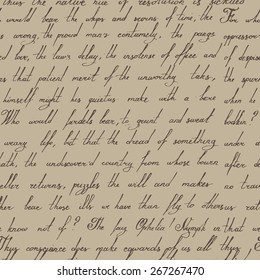 thus the native hue of resolution is sicklied
would bear the whips and scorns of time, the For who
wrong, the proud man's contumely, the pangs oppressor
love, the law's delay, the insolence of office and of despised
that patient merit of the unworthy takes, the spurns
himself might his quietus make with a bare when he
Who would fardels bear, to grunt and sweat bodkin?
weary life, but that the dread of something under a
death, the undiscover'd country from whose bourn after
returns, puzzles the will and makes no
bear those ills we have than fly to others
know not of? The fair Ophelia! Nymph in that
Thus conscience does make cowards of us all thus
shutterstock
267267470